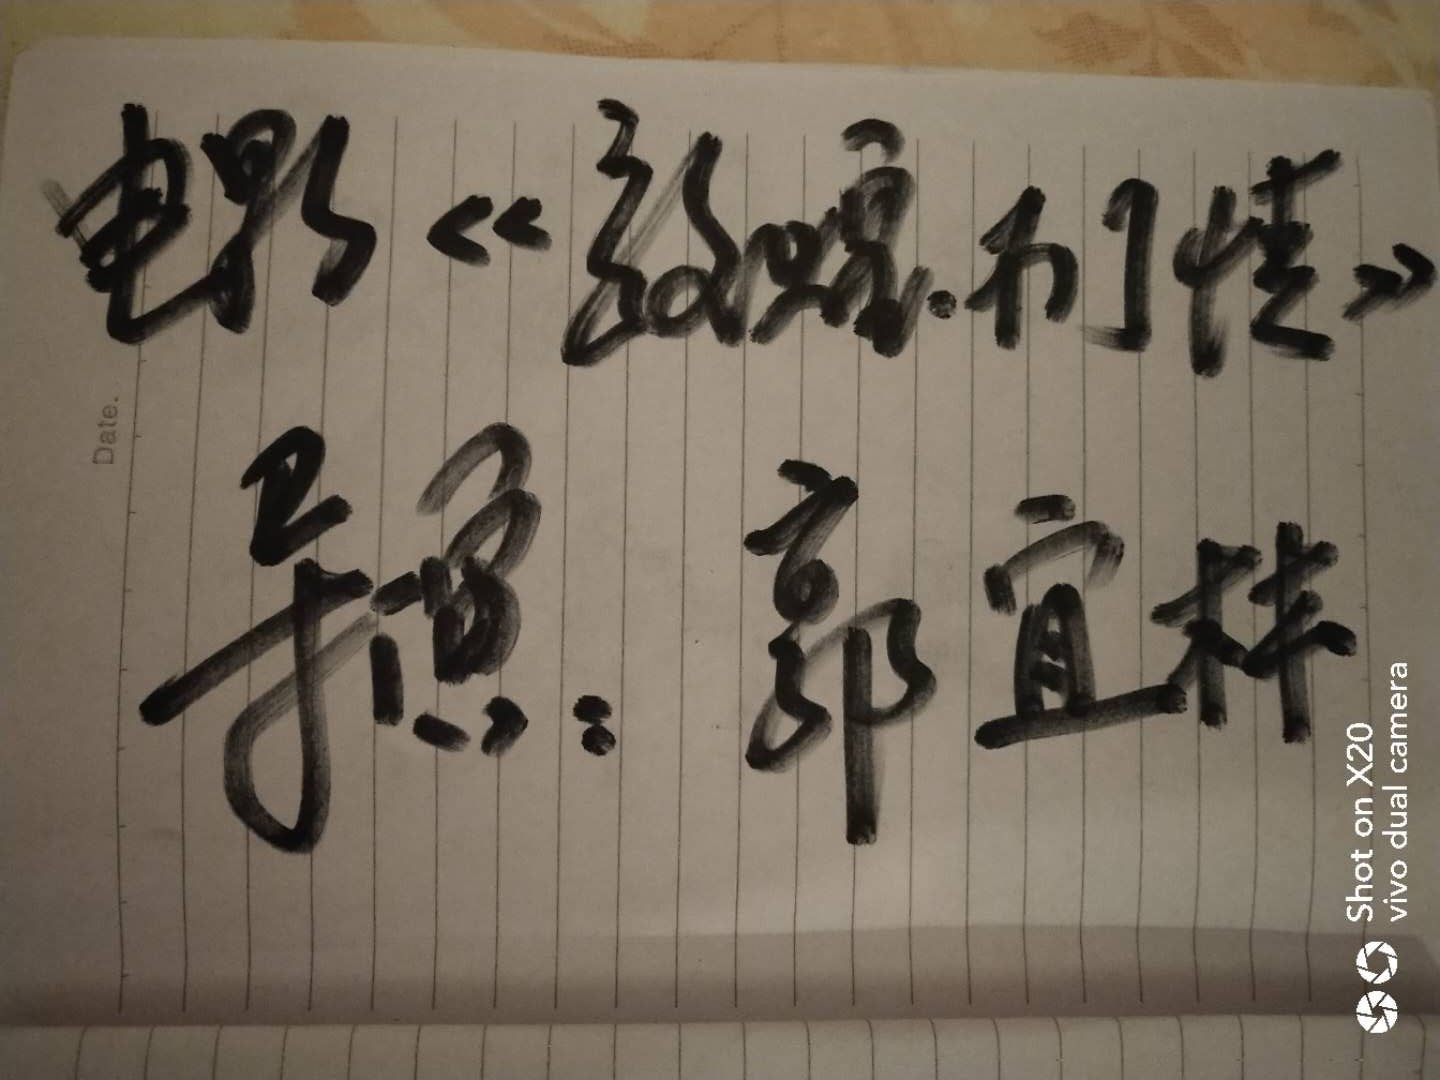 电影《敦煌·门情》
导演：郭宜林
Date.
Shot on X20
vivo dual camera